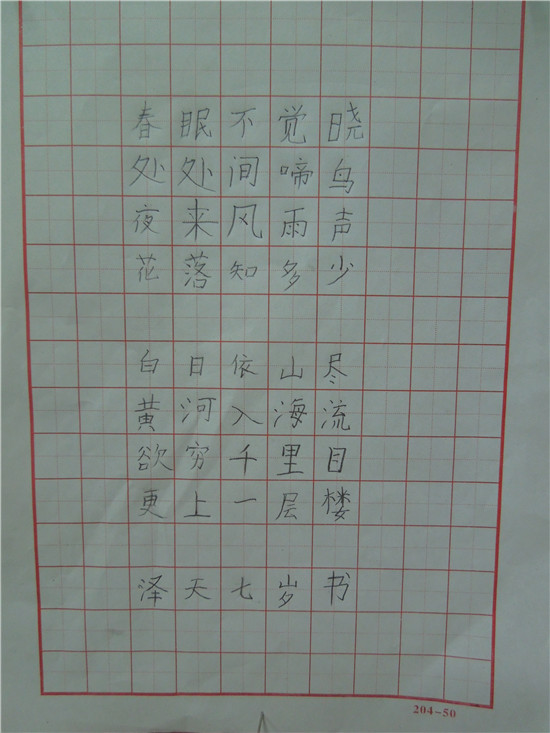 春眠不觉晓
处处间啼鸟
夜来风雨声
花落知多少
白日依山尽
黄河入海流
欲穷千里目
更上一层楼
泽天七岁书
204-50